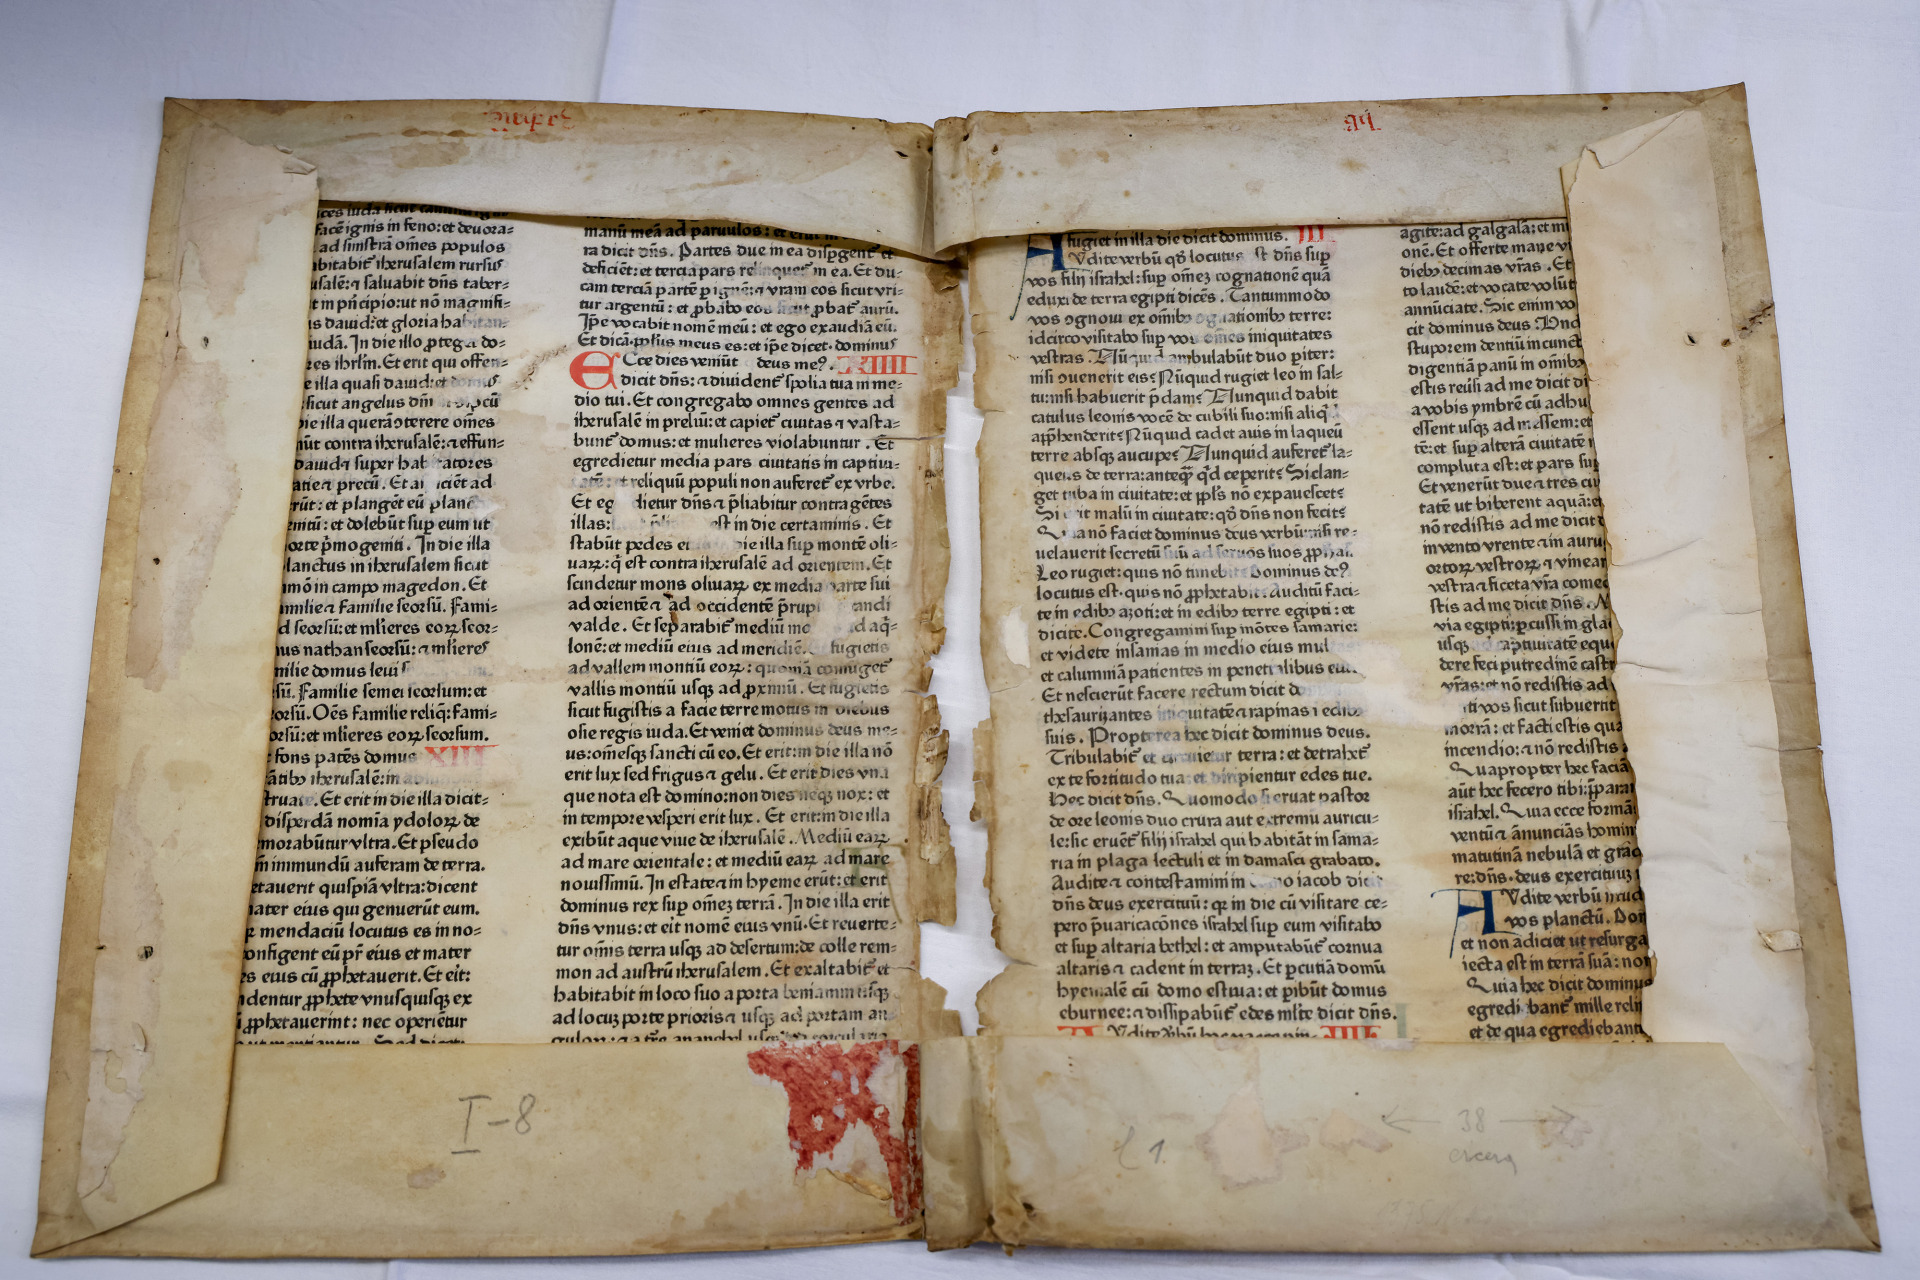 facē ignis in feno: et deuora=
ad sinistrā om̄es populos
abitabit̄ iherusalem rursus
usalē: ⁊ saluabit dn̄s taber=
t in prīcipio: ut nō magnifi=
is dauid: et gloria habitan=
iudā. In die illo ꝓteget do=
res ihrl̄m. Et erit qui offen=
e illa quasi dauid: et domus
sicut angelus dn̄i
die illa querā ↄterere om̄es
niūt contra iherusalē: ⁊ effun=
dauid ⁊ super habitatores
atie ⁊ precū. Et aspiciēt ad
erūt: et plangēt eū planc
enitū: et dolebūt sup eum ut
morte p̄mogeniti. In die illa
planctus in iherusalem sicut
mmō in campo magedon. Et
amilie ⁊ familie seorsū. Fami=
d seorsū: et ml̄ieres eoꝝ seor=
us nathan seorsū: ⁊ ml̄ieres
milie domus leui s
sū. Familie semei seorsum: et
seorsū. Oēs familie reliq̄: fami=
orsū: et ml̄ieres eoꝝ seorsum.
fons patēs domus XIII
ātibꝫ iherusalē: in
truate. Et erit in die illa dicit=
disperdā nomīa ydoloꝝ de
morabūtur vltra. Et pseudo
m̄ immundū auferam de terra.
etauerit quispiā vltra: dicent
ater eius qui genuerūt eum.
mendaciū locutus es in no=
onfigent eū pr̄ eius et mater
s eius cū ꝓphetauerit. Et eīt:
dentur ꝓphete vnusquisqꝫ ex
ꝓphetauerint: nec operiētur
manū meā ad paruulos: et erūt in
ra dicit dn̄s. Partes due in ea disꝑgent̄ et
deficiēt: et tercia pars relinquet̄ in ea. Et du=
cam terciā partē ꝑ ignē: ⁊ vram eos sicut vri=
tur argentū: et ꝓbabo eos sicut ꝓbat̄ aurū.
Ip̄e vocabit nomē meū: et ego exaudiā eū.
Et dicā. ppl̄us meus es: et ip̄e dicet. dominus
Ecce dies veniūt deus me⁹. XIIII
dicit dn̄s: ⁊ diuident̄ spolia tua in me=
dio tui. Et congregabo omnes gentes ad
iherusalē in preliū: et capiet̄ ciuitas ⁊ vasta=
bunt̄ domus: et mulieres violabuntur. Et
egredietur media pars ciuitatis in captiui=
tatē: et reliquū populi non auferet̄ ex vrbe.
Et egredietur dn̄s ⁊ p̄liabitur contra gētes
illas: est in die certaminis. Et
stabūt pedes ei die illa sup montē oli=
uaꝝ: q̄ est contra iherusalē ad orientem. Et
scindetur mons oliuaꝝ ex media parte sui
ad orientē ⁊ ad occidentē p̄rup
valde. Et separabit̄ mediū mo ad aq̄=
lonē: et mediū eius ad meridiē. fugietis
ad vallem montiū eoꝝ: quoniā coniuget̄
vallis montiū usqꝫ ad ꝓxīmū. Et fugietis
sicut fugistis a facie terre motus in diebus
osie regis iuda. Et veniet dominus deus me=
us: om̄esqꝫ sancti cū eo. Et erit: in die illa nō
erit lux sed frigus ⁊ gelu. Et erit dies vna
que nota est domino: non dies neqꝫ nox: et
in tempore vesperi erit lux. Et erit: in die illa
exibūt aque viue de iherusalē. Mediū eaꝝ
ad mare orientale: et mediū eaꝝ ad mare
nouissimū. In estate ⁊ in hyeme erūt: et erit
dominus rex sup om̄eꝫ terrā. In die illa erit
dn̄s vnus: et eīt nomē eius vnū. Et reuerte=
tur om̄is terra usqꝫ ad desertum: de colle rem=
mon ad austrū iherusalem. Et exaltabit̄ et
habitabit in loco suo a porta beniamin usqꝫ
ad locuꝫ porte prioris ⁊ usqꝫ ad portam an=
I-8
fugiet in illa die dicit dominus. III
AVdite verbū qd̄ locutus est dn̄s sup
vos filij israhel: sup om̄eꝫ cognationē quā
eduxi de terra egipti dicēs. Tantummodo
vos ↄgnoui ex om̄ibꝫ cognationibꝫ terre:
idcirco visitabo sup vos om̄es iniquitates
vestras. Nūquid ambulabūt duo ꝑiter:
nisi ↄuenerit eis? Nūquid rugiet leo in sal=
tu: nisi habuerit p̄dam? Nunquid dabit
catulus leonis vocē de cubili suo: nisi aliqd̄
app̄henderit? Nūquid cadet auis in laqueū
terre absqꝫ aucupe? Nunquid auferet̄ la=
queus de terra: anteqꝫ q̇d ceperit? Si clan=
get tuba in ciuitate: et ppl̄s nō expauescet?
Si erit malū in ciuitate: qd̄ dn̄s non fecit?
Quia nō faciet dominus deus verbū: nisi re=
uelauerit secretū suū ad seruos suos ꝓphas.
Leo rugiet: quis nō timebit? Dominus de⁹
locutus est. quis nō ꝓphetabit? Auditū faci=
te in edibꝫ azoti: et in edibꝫ terre egipti: et
dicite. Congregamini sup mōtes samarie:
et videte insanias in medio eius mul
et calumniā patientes in penetralibus eiu
Et nescierūt facere rectum dicit do
thesaurizantes iniquitatē ⁊ rapinas i edibꝫ
suis. Propterea hec dicit dominus deus.
Tribulabit̄ et circuietur terra: et detrahet̄
ex te fortitudo tua: et diripientur edes tue.
Hec dicit dn̄s. Quomodo si eruat pastor
de ore leonis duo crura aut extremū auricu=
le: sic eruēt̄ filij israhel qui habitāt in sama=
ria in plaga lectuli et in damasci grabato.
Audite ⁊ contestamini in domo iacob dicit
dn̄s deus exercituū: qꝛ in die cū visitare ce=
pero p̄uaricacōnes israhel sup eum visitabo
et sup altaria bethel: et amputabūt̄ cornua
altaris ⁊ cadent in terraꝫ. Et ꝑcutiā domū
hyemalē cū domo estiua: et ꝑibūt domus
eburnee: ⁊ dissipabūt̄ edes ml̄te dicit dn̄s.
Audite IIII
agite: ad galgalā: et m
onē. Et offerte mane vi
diebꝫ decimas vr̄as. Et
to laudē: et vocate volūt
annūciate. Sic enim vo
cit dominus deus: Und
stuporem dentiū in cunct
digentiā panū in omībꝫ
estis reūsi ad me dicit d
a vobis ymbrē cū adhu
essent usqꝫ ad messem: et
tē: et sup alterā ciuitatē
compluta est: et pars sup
Et venerūt due ⁊ tres ciu
tatē ut biberent aquā: et
nō redistis ad me dicit
in vento vrente ⁊ in auru
ortoꝝ vestroꝝ ⁊ vinear
vestra ⁊ ficeta vr̄a come
stis ad me dicit dn̄s. M
via egipti: ꝑcussi in gla
usqꝫ ad captiuitatē equ
dere feci putredinē castr
vr̄as: et nō redistis ad
ti vos sicut subuertit
morrā: et facti estis qua
incendio: ⁊ nō redistis
Quapropter hec faciā
aūt hec fecero tibi: p̄parar
israhel. Quia ecce formā
ventū ⁊ ānunciās homin
matutinā nebulā et grad
re: dn̄s. deus exercituū
AVdite verbū
vos planctū. Dom
et non adiciet ut resurga
iecta est in terrā suā: non
Quia hec dicit dominus
egrediebant̄ mille relin
et de qua egrediebant
38